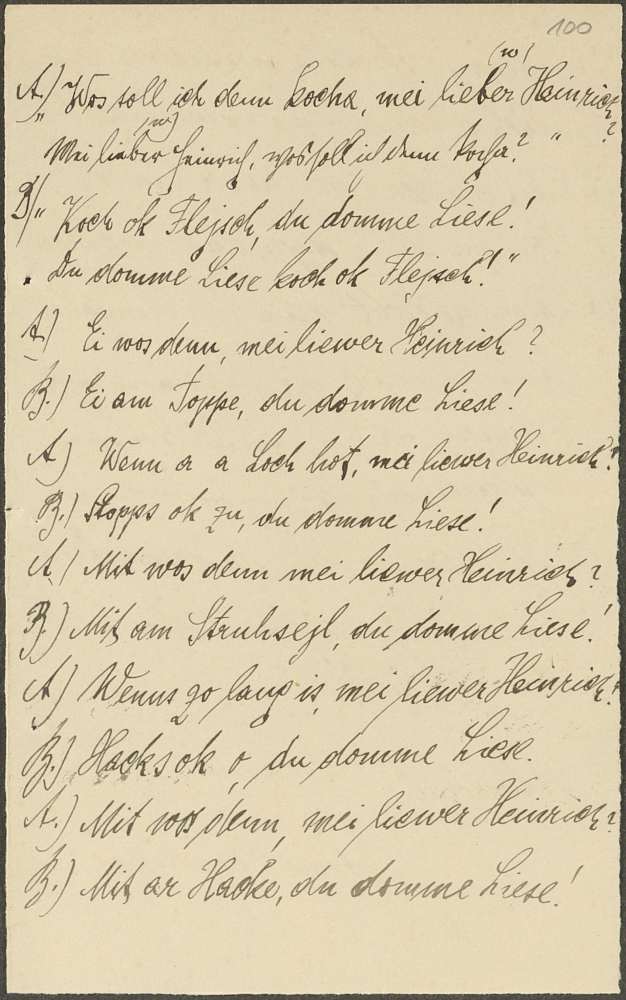 100
(w)
A.) "Wos soll ich denn kocha, mei lieber Heinrich?
(w)
Mei lieber Heinrich, wos soll ich denn kocha?"
B) "Koch ok Flejsch, du domme Liese!
Du domme Liese koch ok Flejsch!"
A) Ei wos denn, mei liewer Heinrich?
B.) Ei am Toppe, du domme Liese!
A) Wenn a a Loch hot, mei liewer Heinrich?
B.) Stopps ok zu, du domme Liese!
A) Mit wos denn mei liewer Heinrich?
B.) Mit am Struhsejl, du domme Liese!
A) Wenns zo lang is, mei liewer Heinrich?
B.) Hacks ok o, du domme Liese.
A.) Mit wos denn, mei liewer Heinrich?
B.) Mit ar Hacke, du domme Liese!